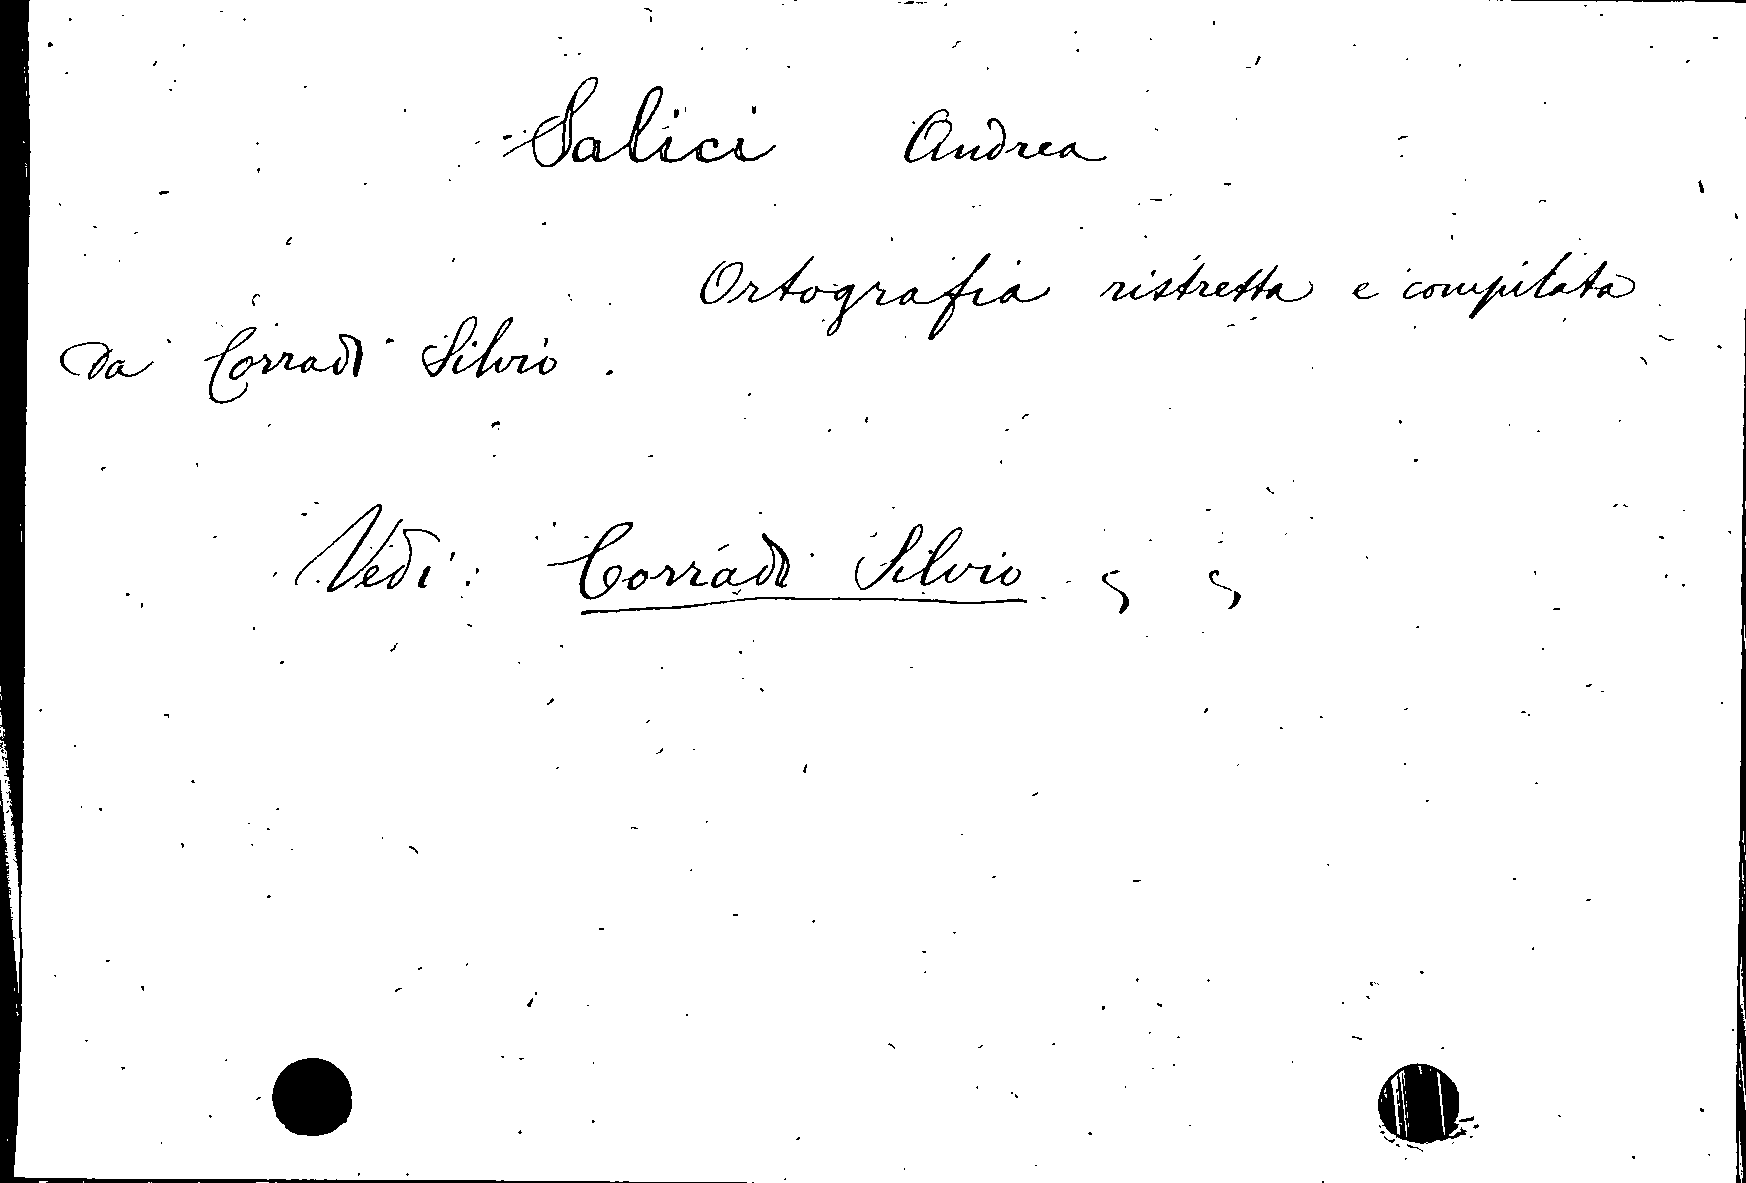 Salici Andrea
Ortografia ristretta e compilata
da Corradi Silvio.
Vedi: Corradi Silvio